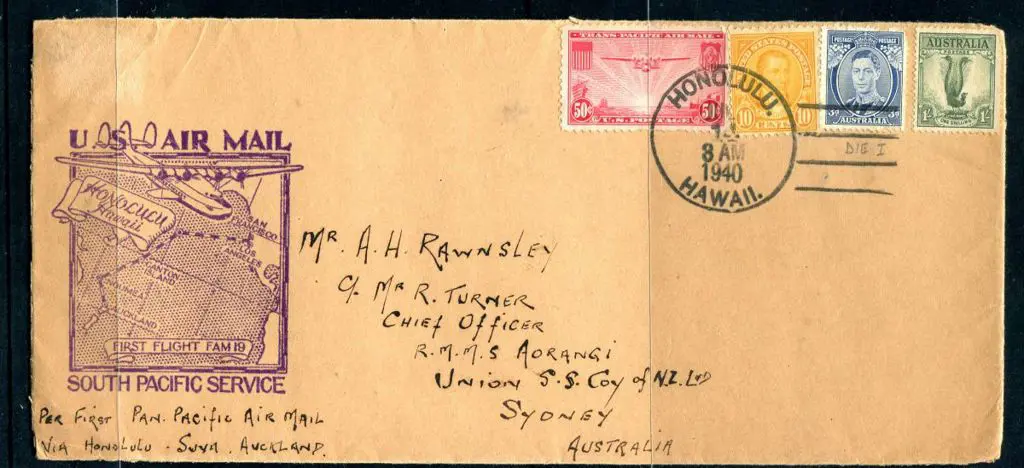 TRANS-PACIFIC AIR MAIL
50¢ 50¢
U.S. POSTAGE
UNITED STATES POSTAGE
10 CENTS 10
POSTAGE POSTAGE
3D 3D
AUSTRALIA
AUSTRALIA
POSTAGE
1/- 1/-
HONOLULU.
8 AM
1940
HAWAII.
DIE I
U.S. AIR MAIL
HONOLULU
Hawaii
SAN FRANCISCO
LOS ANGELES
CANTON
ISLAND
NOUMEA
AUCKLAND
FIRST FLIGHT FAM 19
SOUTH PACIFIC SERVICE
MR. A. H. RAWNSLEY
C/. MR R. TURNER
CHIEF OFFICER
R.M.M.S AORANGI
UNION S.S. COY of N.Z. LTD
SYDNEY
AUSTRALIA
PER FIRST PAN. PACIFIC AIR MAIL
VIA HONOLULU - SUVA. AUCKLAND.